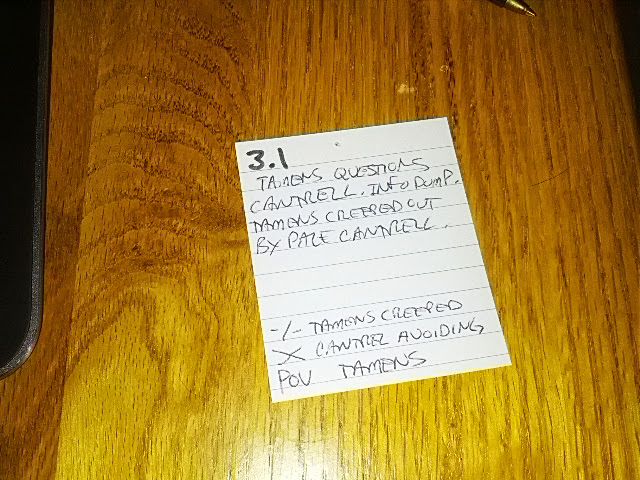 3.1
TAMENS QUESTIONS
CANTRELL. INFO DUMP.
TAMENS CREEPED OUT
BY PALE CANTRELL.
-/- TAMENS CREEPED
X CANTREL AVOIDING
POV TAMENS